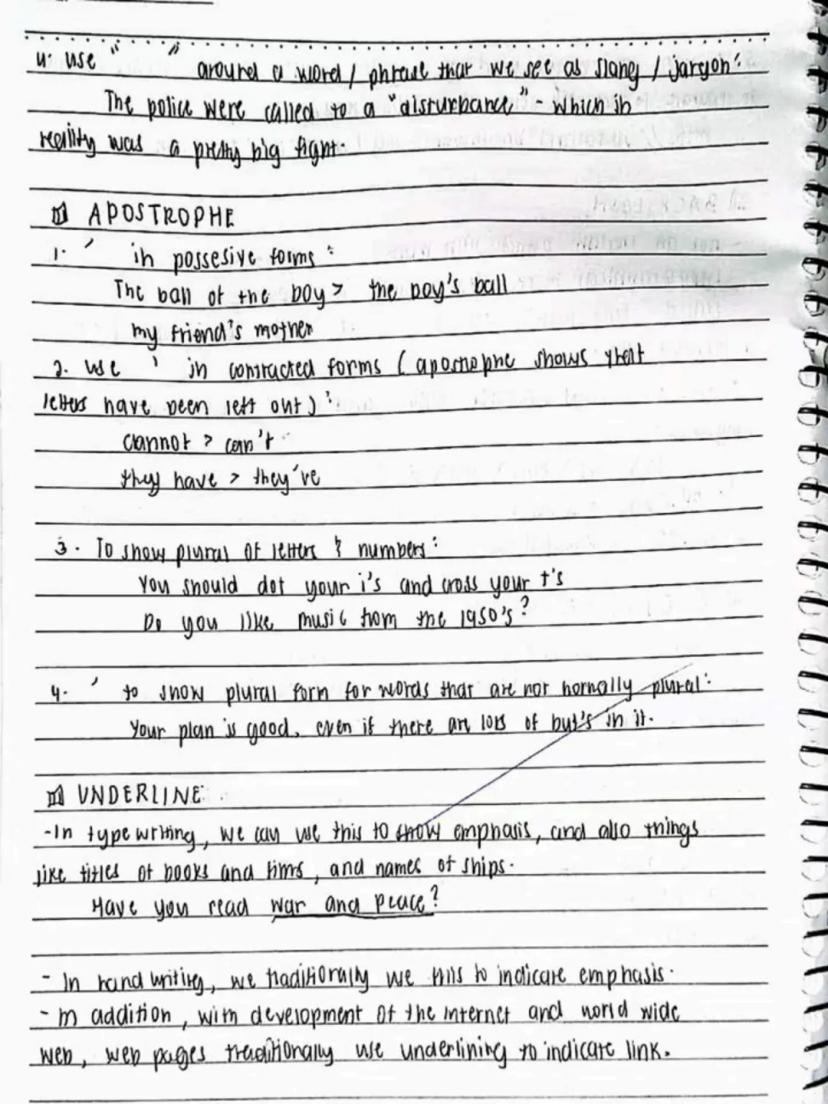 4. use " " around a word / phrase that we see as slang / jargon :
The police were called to a "disturbance" - which in
reality was a pretty big fight.
APOSTROPHE
1. ' in possesive forms :
The ball of the boy > the boy's ball
my friend's mother
2. use ' in contracted forms (apostrophe shows that
letters have been left out) :
cannot > can't
they have > they've
3. To show plural of letters & numbers :
You should dot your i's and cross your t's
Do you like music from the 1950's ?
4. ' to show plural form for words that are not normally plural :
Your plan is good, even if there are lots of but's in it.
UNDERLINE
-In typewriting, we can use this to show emphasis, and also things
like titles of books and films, and names of ships.
Have you read war and peace?
- In handwriting, we traditionally use this to indicate emphasis.
- In addition, with development of the internet and world wide
web, web pages traditionally use underlining to indicate link.